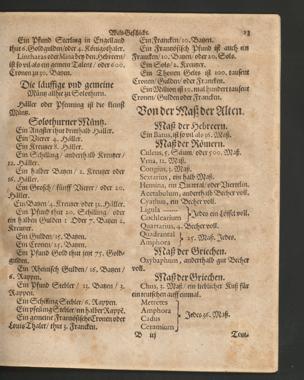 Welt-Geschicht. 23
Ein Pfund Sterling in Engelland
thut 6. Goldgulden/oder 4. Königsthaler.
oder Mina bey den Hebreern/
ist so vil als ein gemein Talent / oder 600.
Cronen zu 30. Batzen.
Die läuffige und gemeine
Müntz allhie zu Solothurn.
Häller oder Pfenning ist die kleinst
Müntz.
Solothurner Müntz.
Ein Angster thut Häller.
Ein Vierer 4. Häller.
Ein Kreutzer 8. Häller.
Ein Schilling / anderthalb Kreutzer /
12. Häller.
Ein halber Batzen / 2. Kreutzer oder
16. Häller.
Ein Grosch / fünff Vierer / oder 20.
Häller.
Ein Batzen/ 4. Kreutzer oder 32. Häller.
Ein Pfund thut 20. Schilling / oder
ein halben Gulden : Oder 7. Batzen 2.
Kreutzer.
Ein Gulden/ 15. Batzen.
Ein Cronen/ 25. Batzen.
Ein Pfund Gold thut jetzt Gold-
gulden.
Ein Rheinisch Gulden / 16. Batzen /
6. Rappen.
Ein Pfund Stebler / 12. Batzen / 3.
Rappen.
Ein Schilling Stebler / 6. Rappen.
Ein Pfenning Stebler/ein halber Rappē.
Ein gemeine Frantzösische Cronen oder
Louis Thaler/ thut 3. Francken.
Ein Francken/10. Batzen.
Ein Frantzösisch Pfund ist auch ein
Francken/10. Batzen/ oder 20. Sols.
Ein Sols/ 2. Kreutzer.
Ein Thonen Golts ist 100. tausent
Cronen/ Gulden /oder Francken.
Ein Million ist 10. mal hundert tausent
Cronen/ Gulden oder Francken.
Von der Maß der Alten.
Maß der Hebreern.
Ein Batus, ist so vil als 16. Maß.
Maß der Römern.
Culeus, 6. Säum/ oder 500. Maß.
Vrna, 12. Maß.
Congius, 3. Maß.
Sextarius, ein halb Maß.
Hemina, ein oder Viertelin.
Acetabulum, anderthalb Becher.
Cyathus, ein Becher voll.
Ligula
Cochlearium
Jedes ein Löffel voll.
Quartarius, 4. Becher voll.
Quadrantal
Amphora
25. Maß. Jedes.
Maß der Griechen.
Oxybaphum, anderthalb gut Becher
voll.
Maß der Griechen.
Chus, 3. Maß/ ein lieblicher Kuß für
ein teutschen auff einmal.
Metretes
Amphora
Cadus
Ceramium
Jedes 36. Maß.
B iij
Teut-